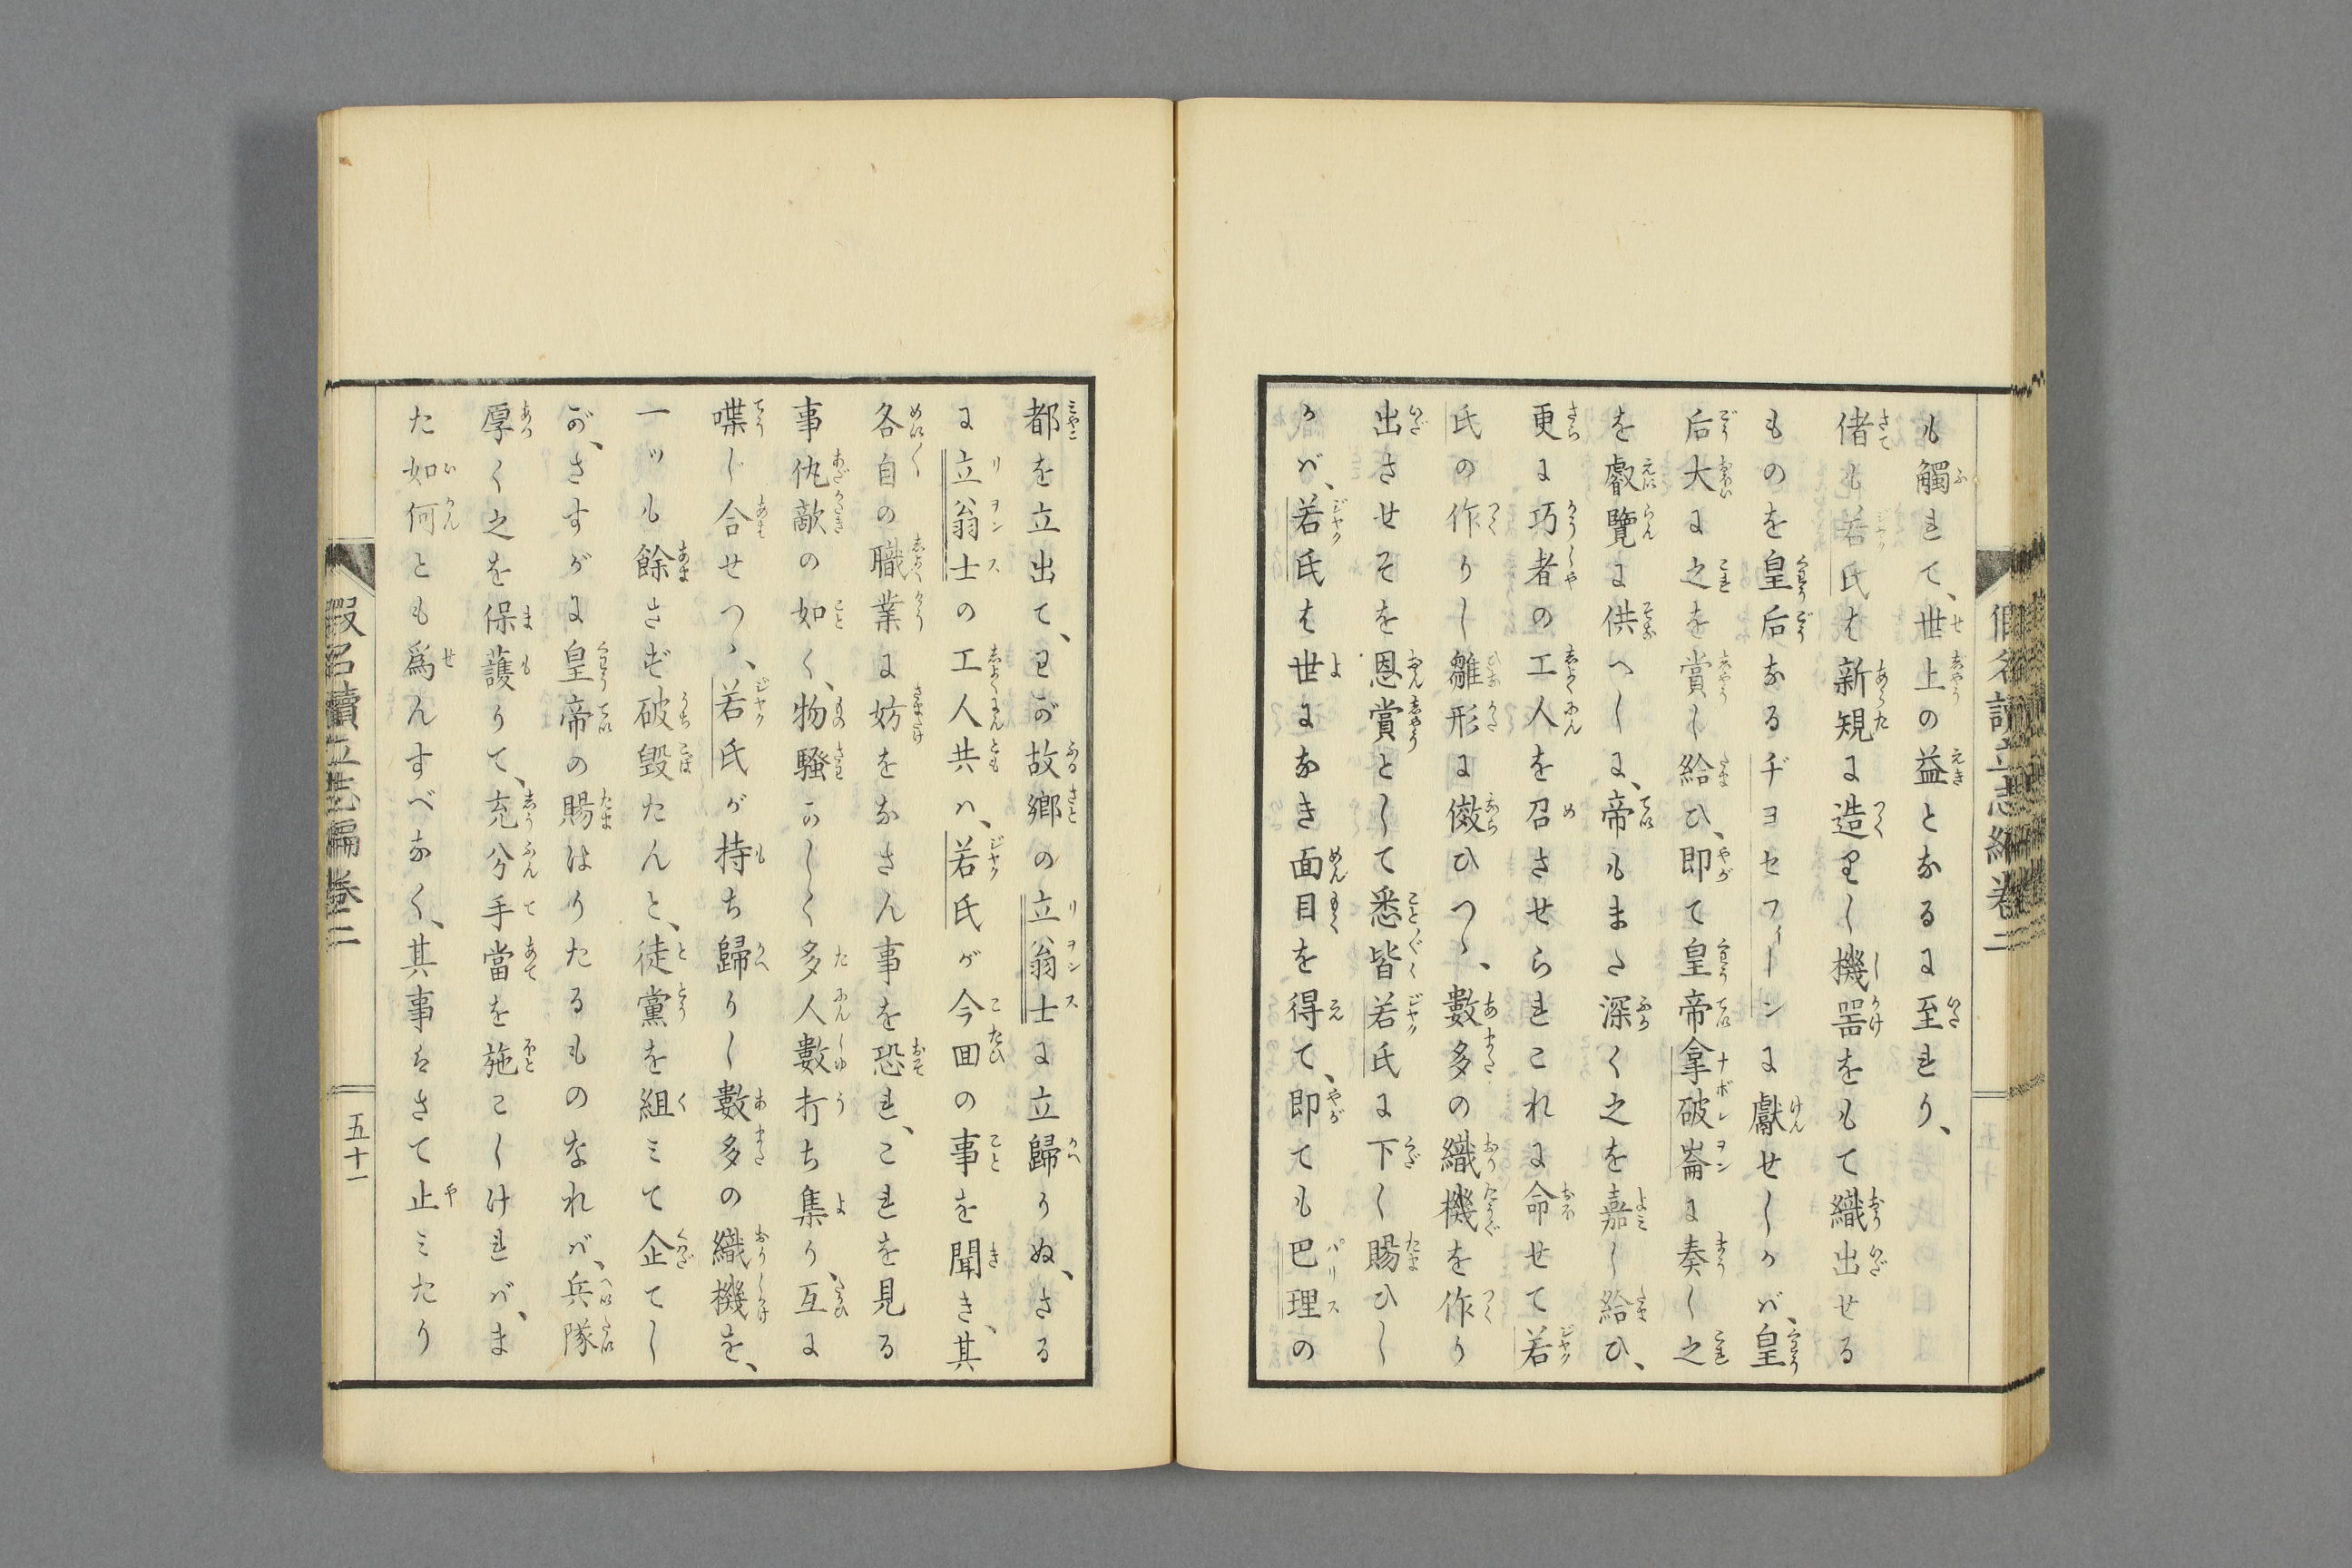 も觸れて、世上の益となるに至れり、
偖も若氏は新規に造りし機噐をもて織出せる
ものを皇后なるヂヨセフィーンに獻せしかバ、皇
后大に之を賞し給ひ、即て皇帝拿破崙に奏し之
を叡覽に供へしに、帝もまた深く之を嘉し給ひ、
更に巧者の工人を召させられこれに命せて若
氏の作りし雛形に傚ひつゝ、數多の織機を作り
出させそを恩賞として悉皆若氏に下し賜ひし
かバ、若氏は世になき面目を得て、即ても巴理の
假名讀立志編卷二
都を立出て、わが故鄉の立翁士に立歸りぬ、さる
に立翁士の工人共ハ、若氏が今回の事を聞き、其
各自の職業に妨をなさん事を恐れ、これを見る
事仇敵の如く、物騷かしく多人數打ち集り、互に
喋じ合せつゝ、若氏が持ち歸りし數多の織機を、
一ツも餘さず破毀たんと、徒黨を組ミて企てし
が、さすがに皇帝の賜はりたるものなれバ、兵隊
厚く之を保護りて、充分手當を施こしけれバ、ま
た如何とも爲んすべなく、其事はさて止ミたり
假名讀立志編卷二
五十一